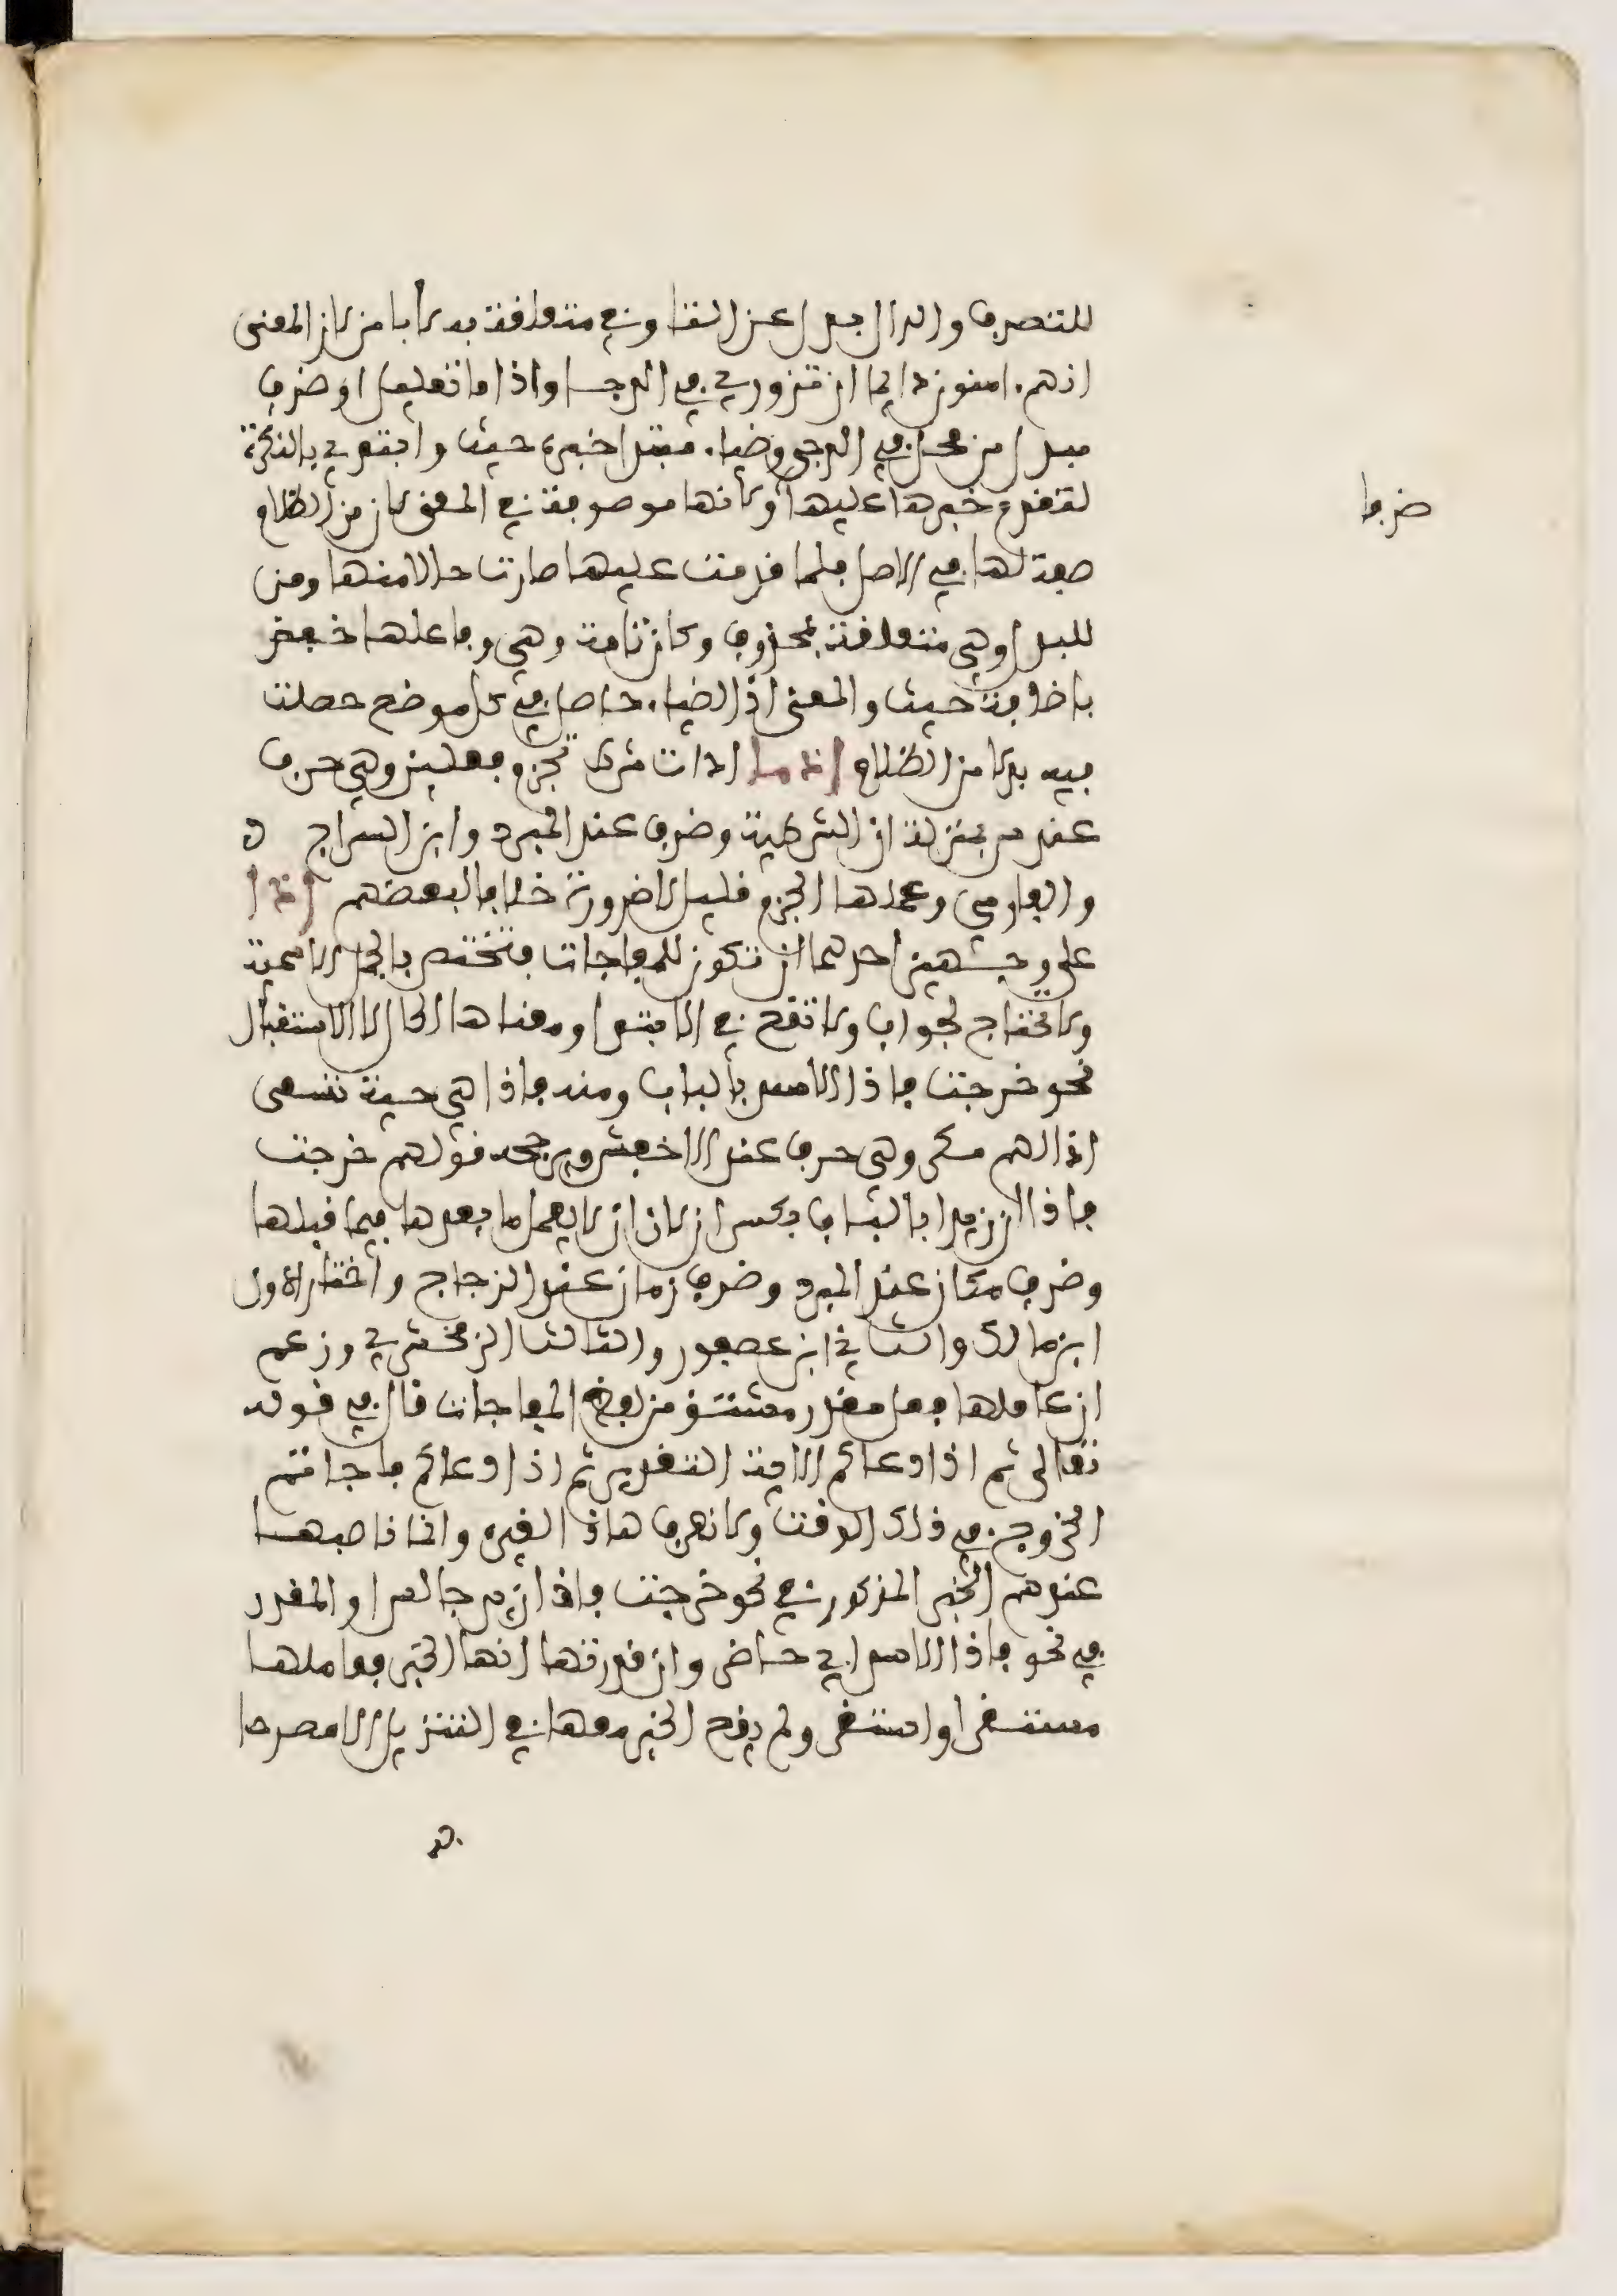 للتصرف والدال بدل عن التا وفي متعلقة به لا بامن لان المعنى
انهم امنون دايما ان تزوري في الدجا واذ اما تعليل او ظرف
مبدل من محل في الدجى وضياء مبتدا خبره حيث وابتدي بالنكرة
لتقدم خبرها عليها ولانها موصوفة في المعنى لان من الظلام
صفة لها في الاصل فلما قدمت عليها صارت حالا منها ومن
للبدل وهي متعلقة بمحذوف وكان تامة وهي وفاعلها خفض
باضافة حيث والمعنى اذ الضياء حاصل في كل موضع حصلت
فيه بدلا من الظلام إذ ما ادات شرط تجزم فعلين وهي حرف
عند س بمنزلة ان الشرطية وظرف عند المبرد وابن السراج
والفارسي وعملها الجزم قليل لا ضرورة خلافا لبعضهم إذا
على وجهين احدهما ان تكون للمفاجات فتختص بالجمل الاسمية
ولا تحتاج لجواب ولا تقع في الابتدا ومعناها الحال لا الاستقبال
نحو خرجت فاذا الاسد بالباب ومنه فاذا هي حية تسعى
اذا لهم مكر وهي حرف عند الاخفش ويرجحه قولهم خرجت
فاذا ان زيدا بالباب بكسر ان لان ان لا يعمل ما بعدها فيما قبلها
وظرف مكان عند المبرد وظرف زمان عند الزجاج واختار الاول
ابن مالك والثاني ابن عصفور والثالث الزمخشري وزعم
ان عاملها فعل مقدر مشتق من لفظ المفاجات قال في قوله
تعالى ثم اذا دعاكم الاية التقدير ثم اذا دعاكم فاجاتم
الخروج في ذلك الوقت ولا نعرف هاذا لغيره وانما ناصبها
عندهم الخبر المذكور في نحو خرجت فاذا زيد جالس او المقدر
في نحو فاذا الاسد اي حاضر وان قدرتها انها الخبر فعاملها
مستقر او استقر ولم يقع الخبر معها في التنزيل الا مصرحا
ظرفا